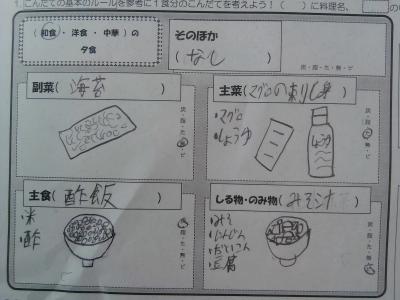 1. こんだての基本のルールを参考に1食分のこんだてを考えよう!( )に料理名、
(和食・洋食・中華)の
夕食
そのほか
(なし)
炭・脂・た・無・ビ
副菜(海苔)
炭・脂・た・無・ビ
主菜(マグロの刺し身)
・マグロ
・しょうゆ
しょうゆ
炭・脂・た・無・ビ
主食(酢飯)
・米
・酢
炭・脂・た・無・ビ
しる物・のみ物(みそ汁)
・みそ
・にんじん
・だいこん
・豆腐
炭・脂・た・無・ビ